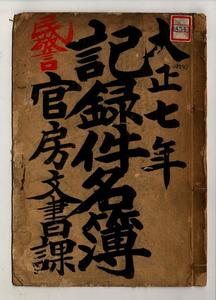 大正七年
記録件名簿
官房文書課